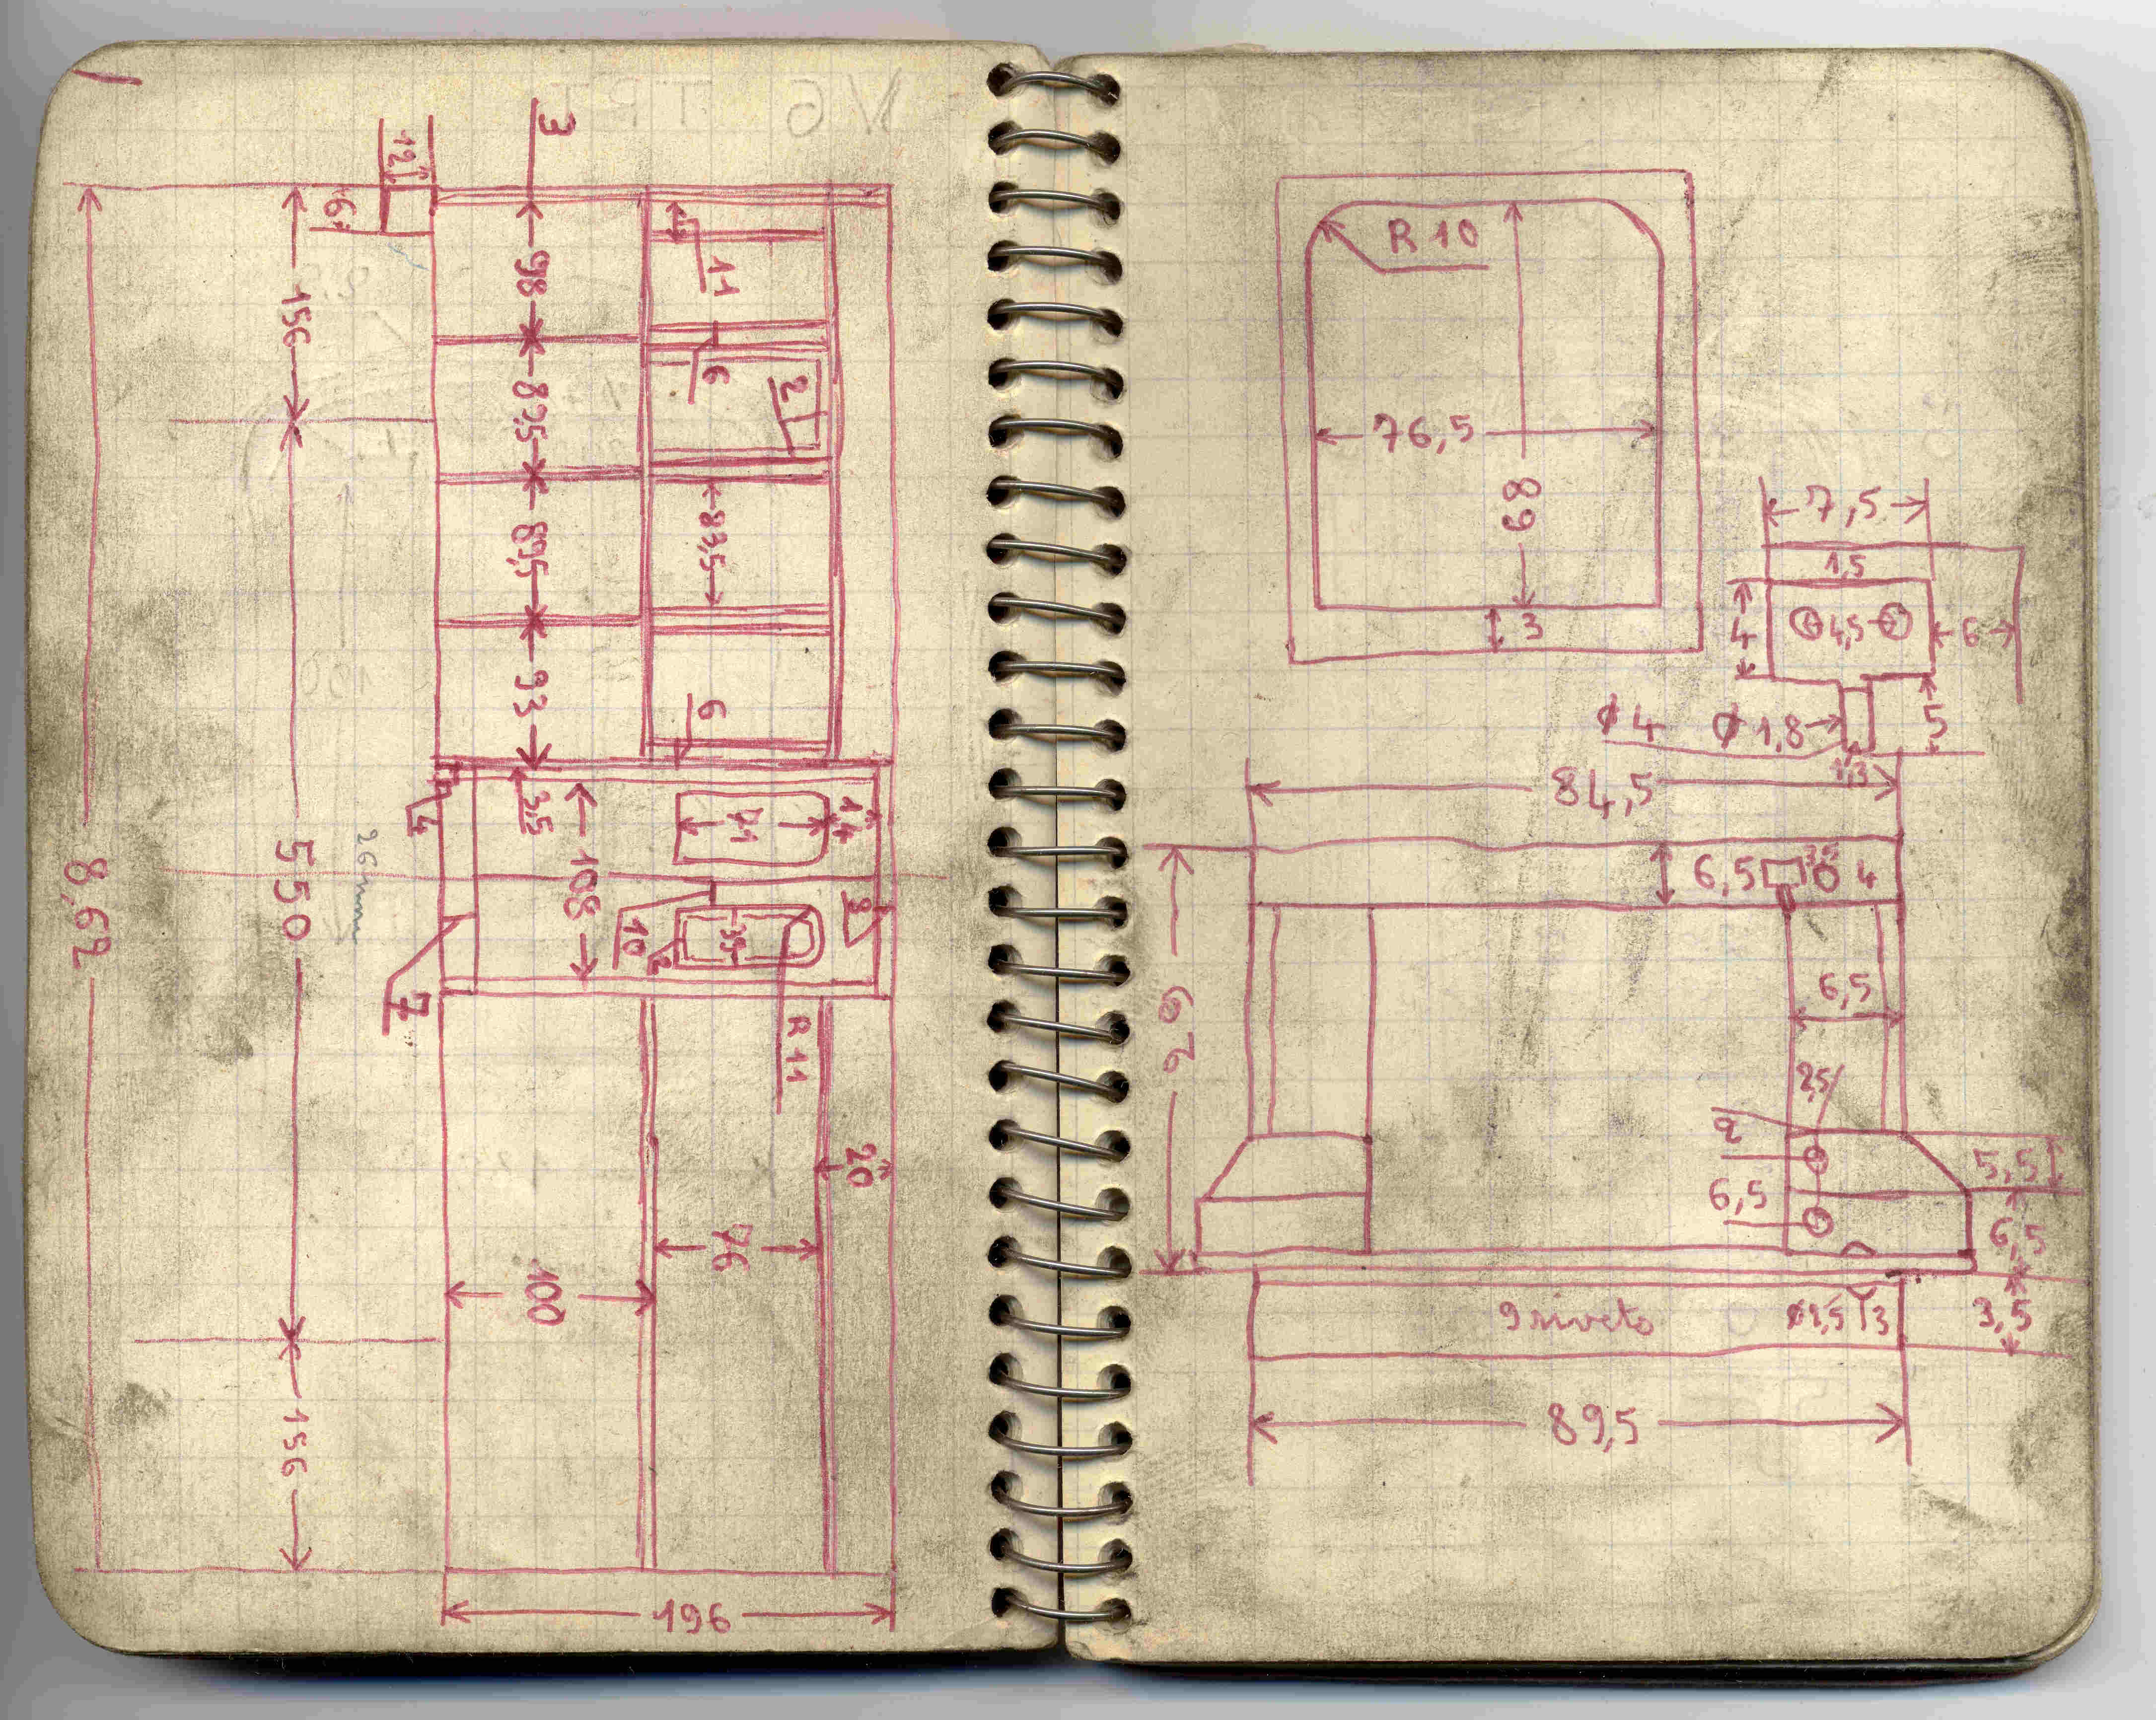 3
12
6
98
11
156
83,5
6
2
89,5
83,5
93
6
3,5
4
71
14
108
550
8,62
26mm
10
2
39
9
7
R 11
20
76
100
156
196
R 10
76,5
89
3
7,5
1,5
4
4,5
6
ø 4
ø 1,8
5
1,3
84,5
6,5
4
29
6,5
2,5
2
5,5
6,5
6,5
9 rivets
3
3,5
89,5